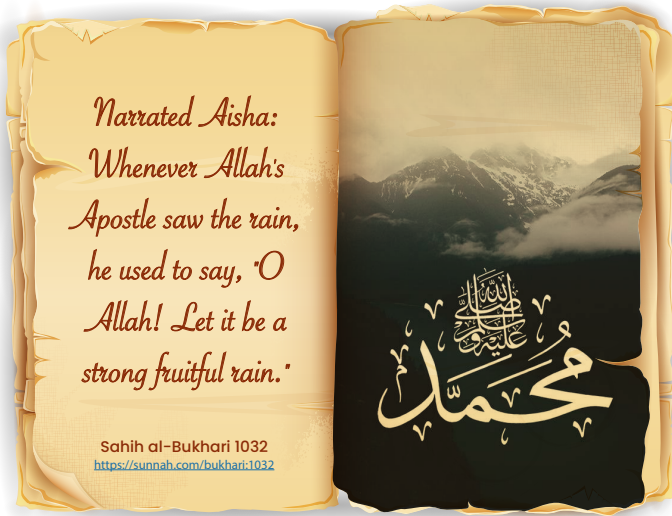 Narrated Aisha:
Whenever Allah's
Apostle saw the rain,
he used to say, "O
Allah! Let it be a
strong fruitful rain."
Sahih al-Bukhari 1032
https://sunnah.com/bukhari:1032
صلى الله عليه وسلم
محمد